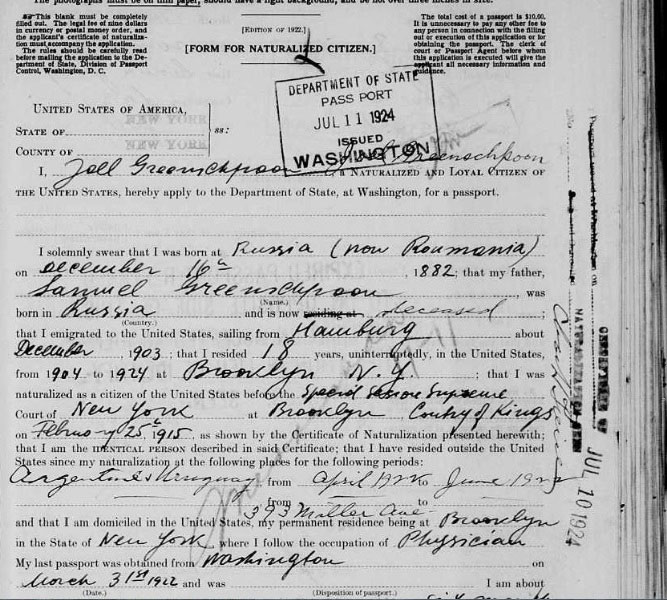 The photographs must be on thin paper, should have a light background, and be not over three inches in size.
☞ This blank must be completely
filled out. The legal fee of nine dollars
in currency or postal money order, and
the applicant's certificate of naturaliza-
tion must accompany the application.
The rules should be carefully read
before mailing the application to the De-
partment of State, Division of Passport
Control, Washington, D. C.
[EDITION OF 1922.]
[FORM FOR NATURALIZED CITIZEN.]
The total cost of a passport is $10.00.
It is unnecessary to pay any other fee to
any person in connection with the filling
out or execution of this application or for
obtaining the passport. The clerk of
court or Passport Agent before whom
this application is executed will give the
applicant all necessary information and
guidance.
DEPARTMENT OF STATE
PASS PORT
JUL 11 1924
ISSUED
WASHINGTON
UNITED STATES OF AMERICA,
STATE OF NEW YORK
COUNTY OF NEW YORK
ss:
I, Joel Greenschpoon Greenschpoon, a NATURALIZED AND LOYAL CITIZEN OF
THE UNITED STATES, hereby apply to the Department of State, at Washington, for a passport.
I solemnly swear that I was born at Russia (now Roumania)
on December 16th, 1882; that my father,
Samuel Greenschpoon, was
(Name.)
born in Russia and is now residing at deceased
(Country.)
that I emigrated to the United States, sailing from Hamburg about
December, 1903; that I resided 18 years, uninterruptedly, in the United States,
from 1904 to 1924 at Brooklyn N.Y.; that I was
naturalized as a citizen of the United States before the Special Session Supreme
Court of New York at Brooklyn County of Kings
on February 25th 1915, as shown by the Certificate of Naturalization presented herewith;
that I am the IDENTICAL PERSON described in said Certificate; that I have resided outside the
United States since my naturalization at the following places for the following periods:
Argentine & Uruguay from April 1922 to June 1922
from to
393 Miller Ave
and that I am domiciled in the United States, my permanent residence being at Brooklyn
in the State of New York, where I follow the occupation of Physician
My last passport was obtained from Washington on
March 31st 1922 and was I am about
(Date.) (Disposition of passport.)
CERTIFICATE OF
NATURALIZATION
JUL 10 1924